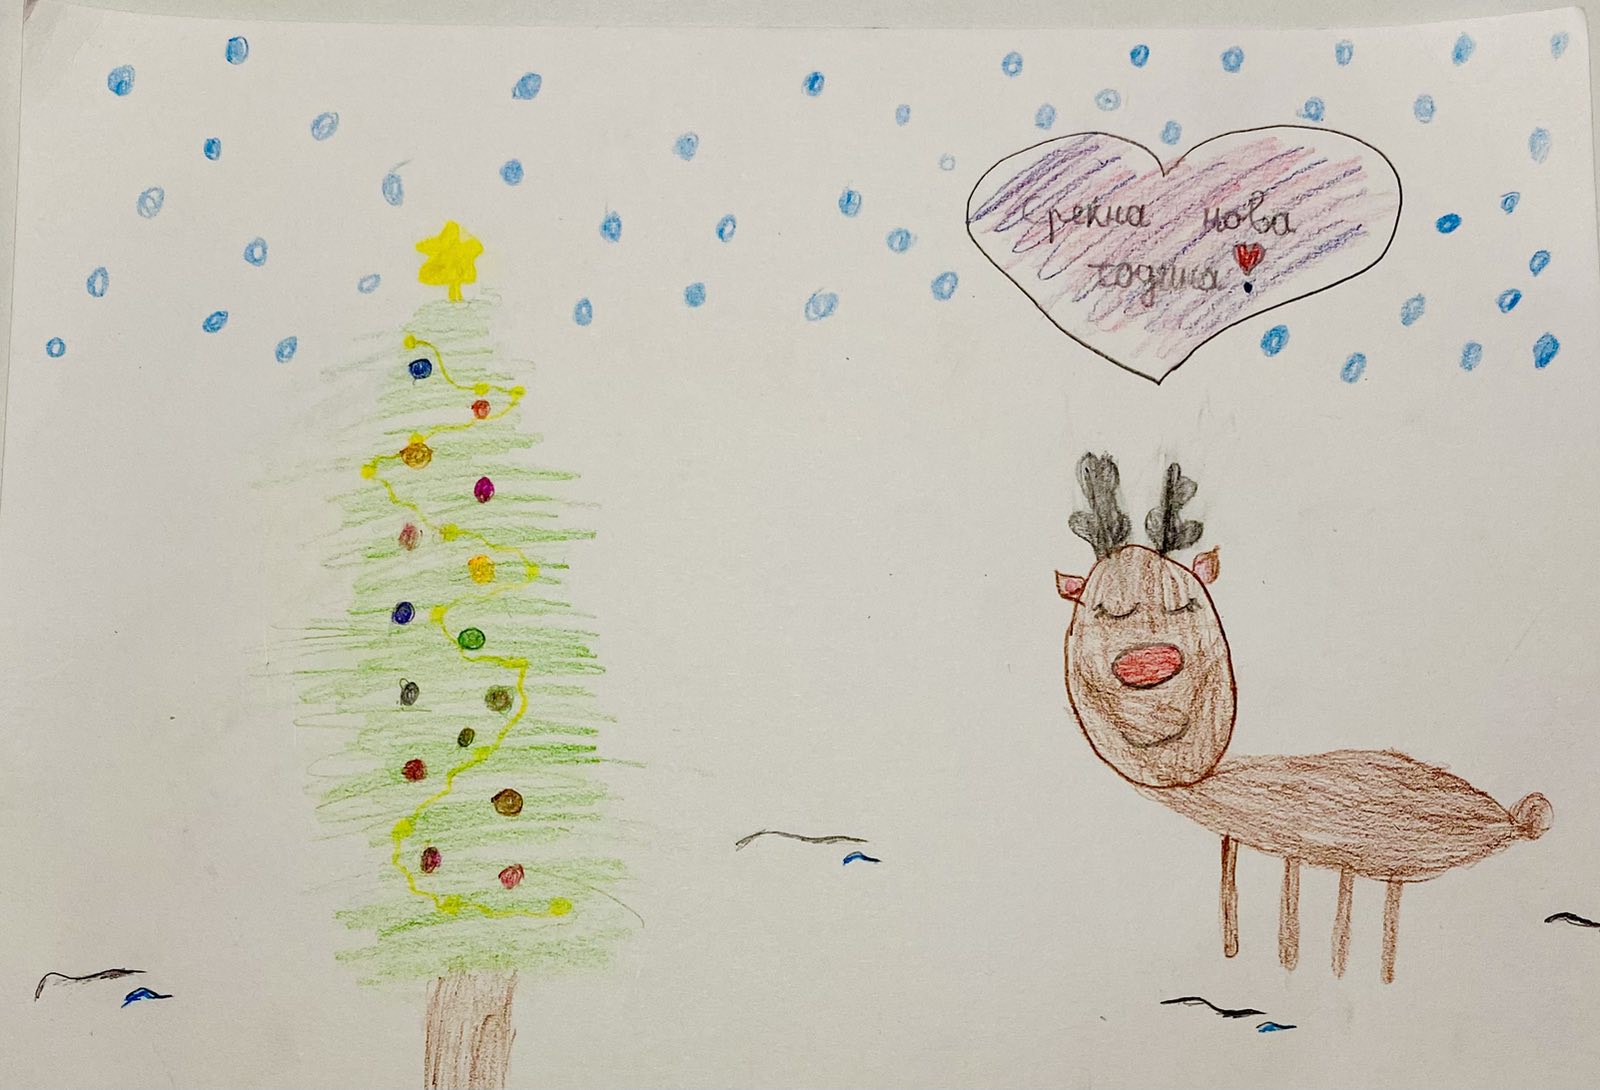 Среќна нова
година!